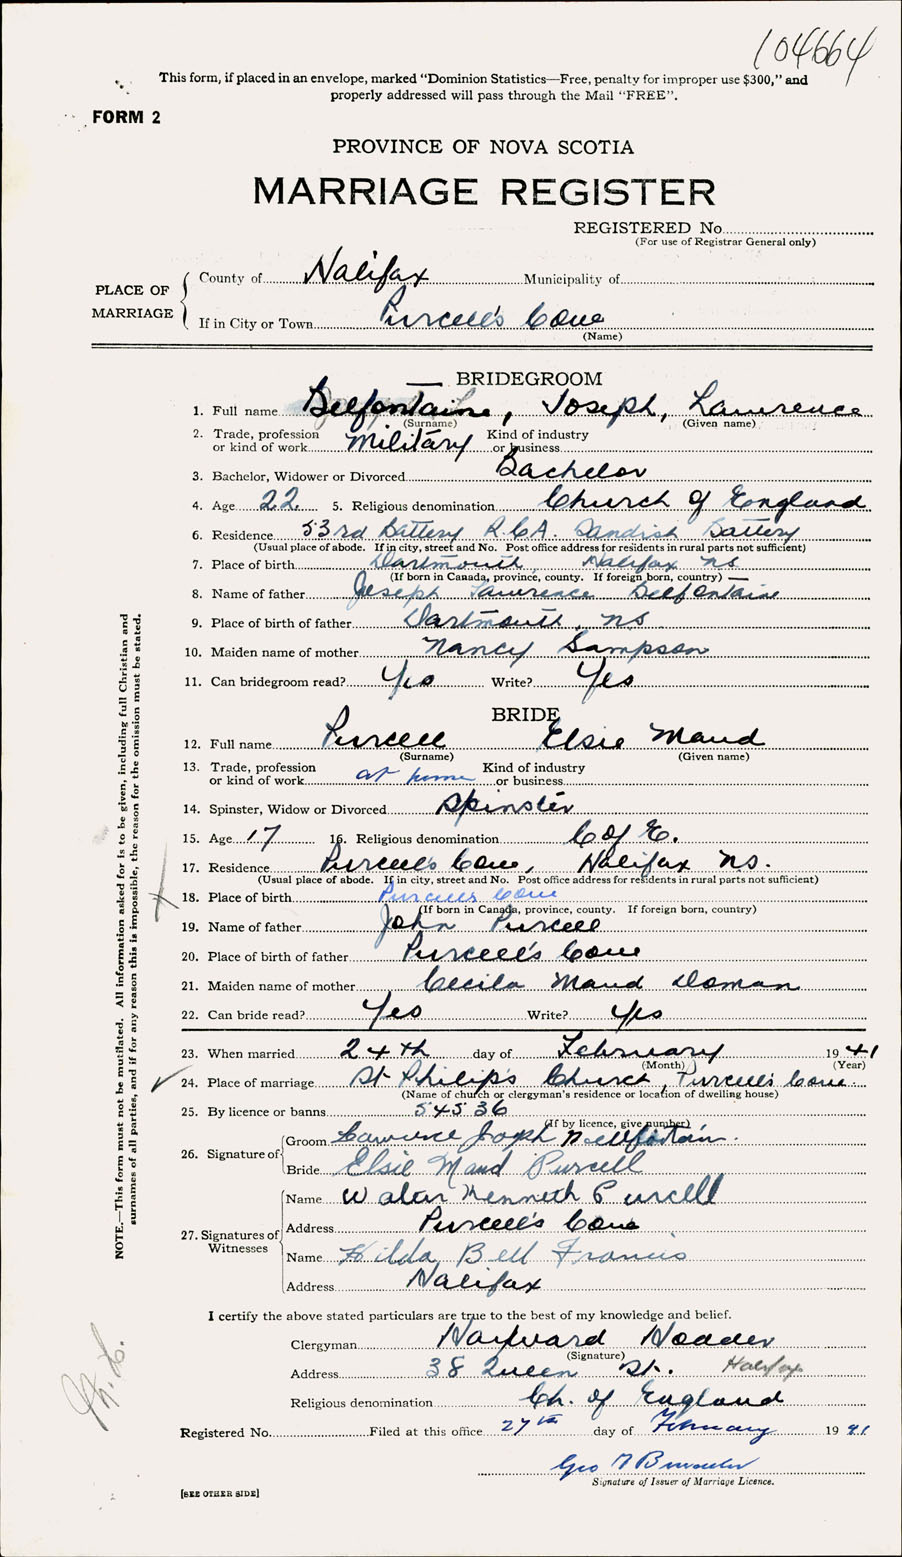 104664
This form, if placed in an envelope, marked "Dominion Statistics—Free, penalty for improper use $300," and
properly addressed will pass through the Mail "FREE".
FORM 2
PROVINCE OF NOVA SCOTIA
MARRIAGE REGISTER
REGISTERED No.
(For use of Registrar General only)
PLACE OF MARRIAGE
County of Halifax Municipality of
If in City or Town Purcell's Cove
(Name)
BRIDEGROOM
1. Full name Belfontaine, Joseph, Lawrence
(Surname) (Given name)
2. Trade, profession or kind of work Military Kind of industry or business
3. Bachelor, Widower or Divorced Bachelor
4. Age 22 5. Religious denomination Church of England
6. Residence 53rd Battery R.C.A. Sandwich Battery
(Usual place of abode. If in city, street and No. Post office address for residents in rural parts not sufficient)
7. Place of birth Dartmouth Halifax NS
(If born in Canada, province, county. If foreign born, country)
8. Name of father Joseph Lawrence Belfontaine
9. Place of birth of father Dartmouth, NS
10. Maiden name of mother Nancy Sampson
11. Can bridegroom read? Yes Write? Yes
BRIDE
12. Full name Purcell Elsie Maud
(Surname) (Given name)
13. Trade, profession or kind of work at home Kind of industry or business
14. Spinster, Widow or Divorced Spinster
15. Age 17 16. Religious denomination C of E.
17. Residence Purcell's Cove, Halifax N.S.
(Usual place of abode. If in city, street and No. Post office address for residents in rural parts not sufficient)
18. Place of birth Purcells Cove
(If born in Canada, province, county. If foreign born, country)
19. Name of father John Purcell
20. Place of birth of father Purcell's Cove
21. Maiden name of mother Cecila Maud Doman
22. Can bride read? Yes Write? Yes
23. When married 24th day of February 1941
(Month) (Year)
24. Place of marriage St Philip's Church, Purcell's Cove
(Name of church or clergyman's residence or location of dwelling house)
25. By licence or banns 54536
(If by licence, give number)
26. Signature of
Groom Lawrence Joseph Bellfontain.
Bride Elsie Maud Purcell
27. Signatures of Witnesses
Name Walter Kenneth Purcell
Address Purcell's Cove
Name Hilda Bell Francis
Address Halifax
I certify the above stated particulars are true to the best of my knowledge and belief.
Clergyman Hayward Hodder
(Signature)
Address 38 Queen St. Halifax
Religious denomination Ch. of England
Registered No. Filed at this office 27th day of February 1941
Geo
Signature of Issuer of Marriage Licence.
[SEE OTHER SIDE]
NOTE.—This form must not be mutilated. All information asked for is to be given, including full Christian and
surnames of all parties, and if for any reason this is impossible, the reason for the omission must be stated.